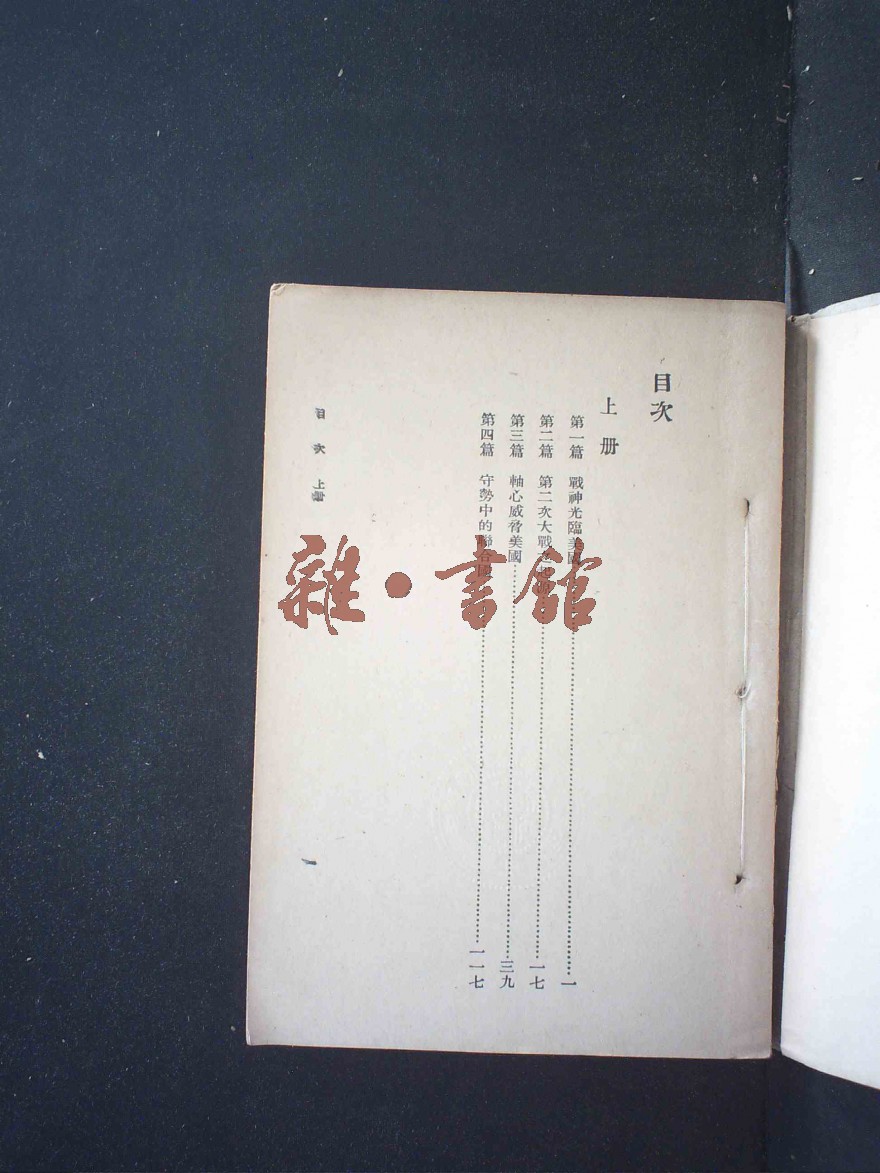 目次
上册
第一篇 戰神光臨美國……一
第二篇 第二次大戰……一七
第三篇 軸心威脅美國……三九
第四篇 守勢中的聯合國……一一七
目次 上册
雜·書館